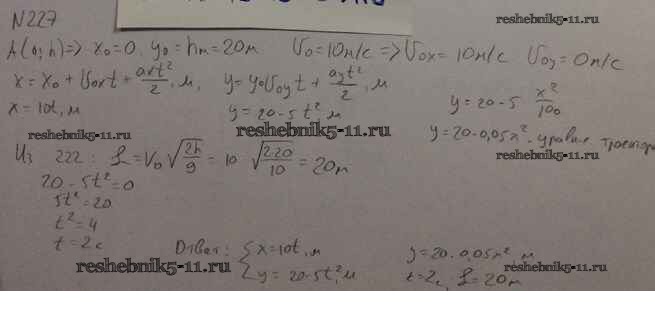 N227
reshebnik5-11.ru
A(0; h) => x₀=0. y₀ = hм = 20м. V₀ = 10м/с => V₀x = 10м/с V₀y = 0м/с
x = x₀ + V₀xt + axt²/2, м, y = y₀V₀yt + ayt²/2, м
x = 10t, м y = 20-5t² м y = 20-5 x²/100
reshebnik5-11.ru reshebnik5-11.ru y = 20-0,05x² - уравне траектори
Из 222: L = V₀ √2h/g = 10 √2·20/10 = 20м reshebnik5-11.ru
20-5t²=0
5t²=20
t²=4
t=2с Ответ: { x=10t, м y=20·0,05x² м
reshebnik5-11.ru y=20·5t², м t=2с, L=20м reshebnik5-11.ru